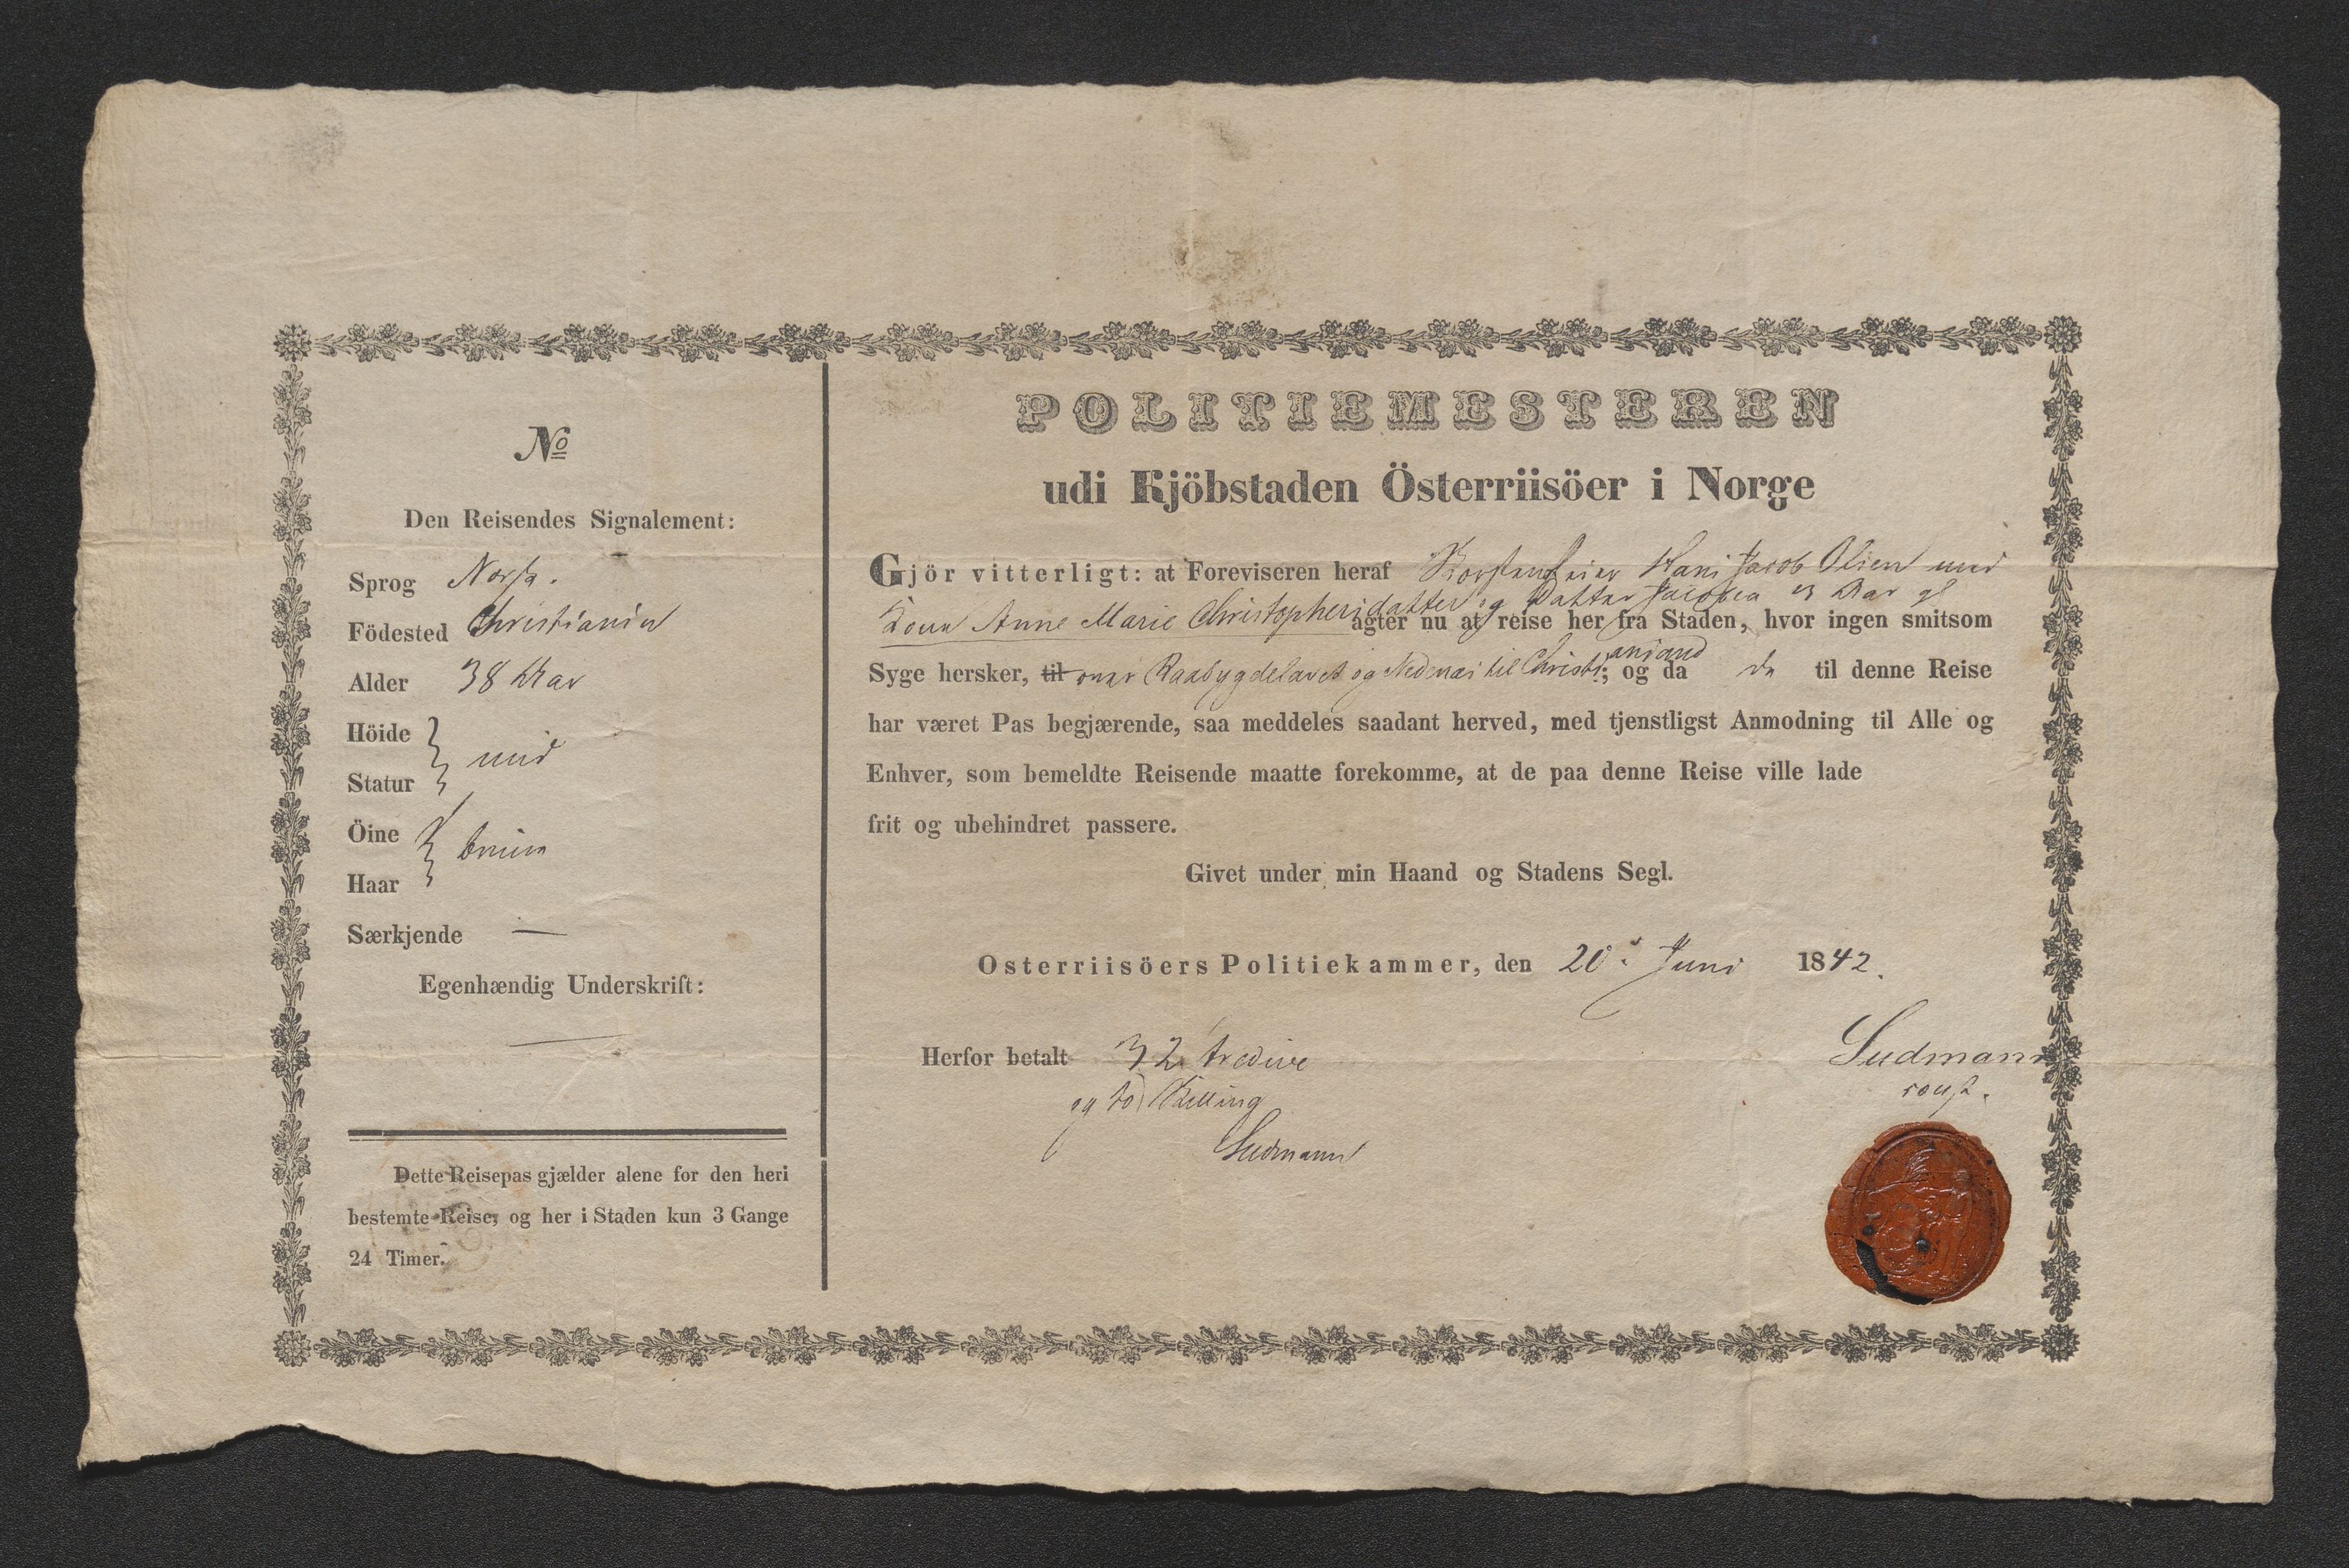 No
Den Reisendes Signalement:
Sprog Norsk.
Födested Christiania
Alder 38 Aar
Höide
Statur mid
Öine
Haar brune
Særkjende —
Egenhændig Underskrift:
Dette Reisepas gjælder alene for den heri
bestemte Reise, og her i Staden kun 3 Gange
24 Timer.
POLITIEMESTEREN
udi Kjöbstaden Österriisöer i Norge
Gjör vitterligt: at Foreviseren heraf Hans Jacob Olsen med
Kone Anne Marie Christophersdatter og Datter Jacobea Aar gl
agter nu at reise her fra Staden, hvor ingen smitsom
Syge hersker, til over Raabygdelavet og Nedenæs til Christiansand; og da de til denne Reise
har været Pas begjærende, saa meddeles saadant herved, med tjenstligst Anmodning til Alle og
Enhver, som bemeldte Reisende maatte forekomme, at de paa denne Reise ville lade
frit og ubehindret passere.
Givet under min Haand og Stadens Segl.
Osterriisöers Politiekammer, den 20de Juni 1842.
Herfor betalt 32 tredive
og to Skilling
Sudmann
Sudmann
const.